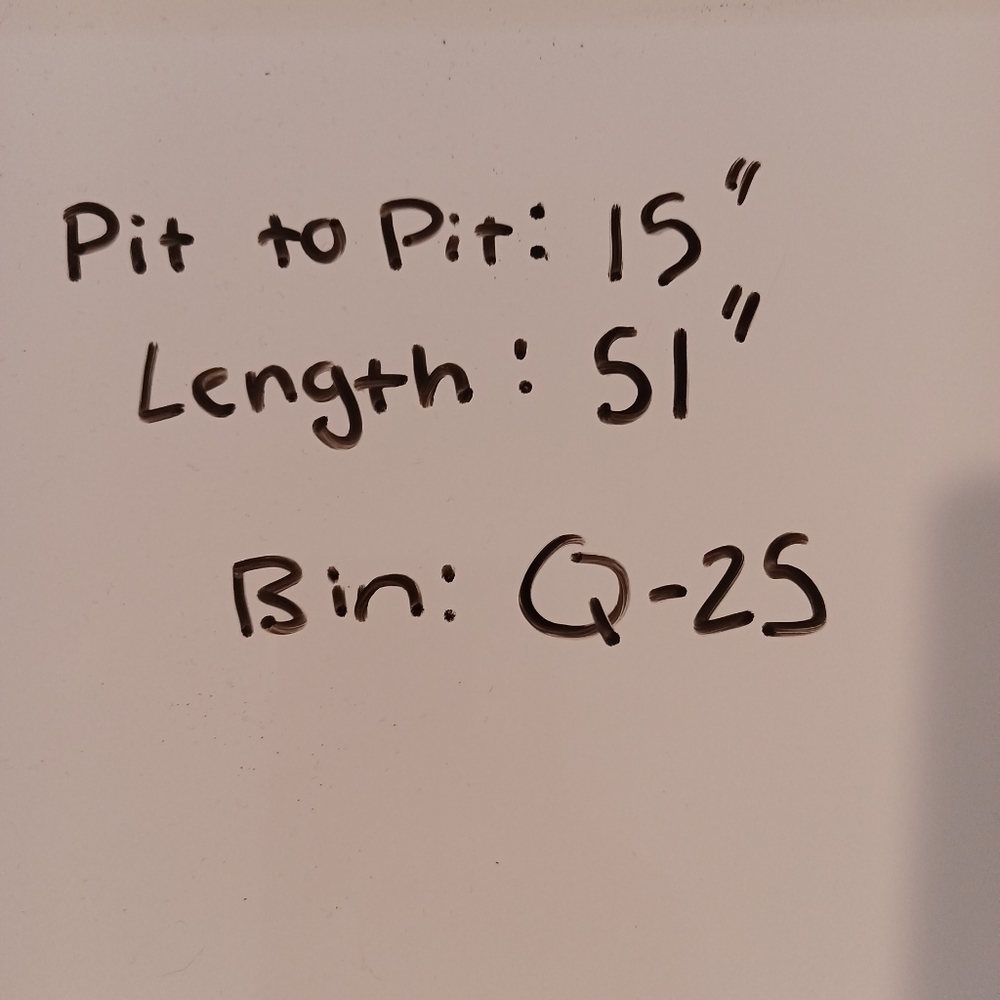 Pit to Pit: 15"
Length: 51"
Bin: Q-25